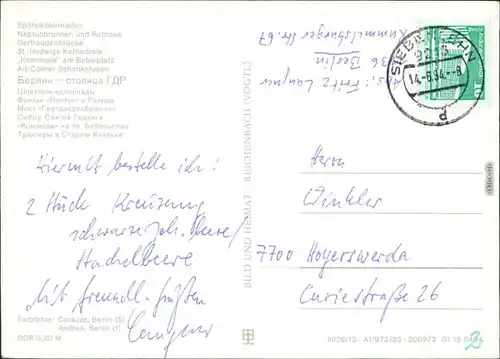 Spittelkolonnaden
Neptunbrunnen und Rathaus
Gertraudenbrücke
St. Hedwigs-Kathedrale
„Kommode" am Bebelplatz
Alt-Cöllner Schankstuben
Берлин — столица ГДР
Шпиттель-колоннады
Фонтан «Нептун» и Ратуша
Мост «Гертрауденбрюкке»
Собор Святой Гедвиги
«Коммоде» на пл. Бебельплац
Трактиры в Старом Кёльне
Hiermit bestelle ich:
2 Stück Kreuzung
schwarze Joh.-Beere/
Stachelbeere
Mit freundl. Grüßen
Langner
Farbfotos: Corazza, Berlin (5)
Andrea, Berlin (1)
DDR 0,20 M
BILD UND HEIMAT REICHENBACH (VOGTL)
Abs.: Fritz Langner
36 Berlin
Rummelsburger Str. 67
SIEBENLEHN
9213
14.-6.84.-8
d
10
Herrn
Winkler
7700 Hoyerswerda
Curiestraße 26
III/26/13 A1/972/83 200972 01 15 0484
2